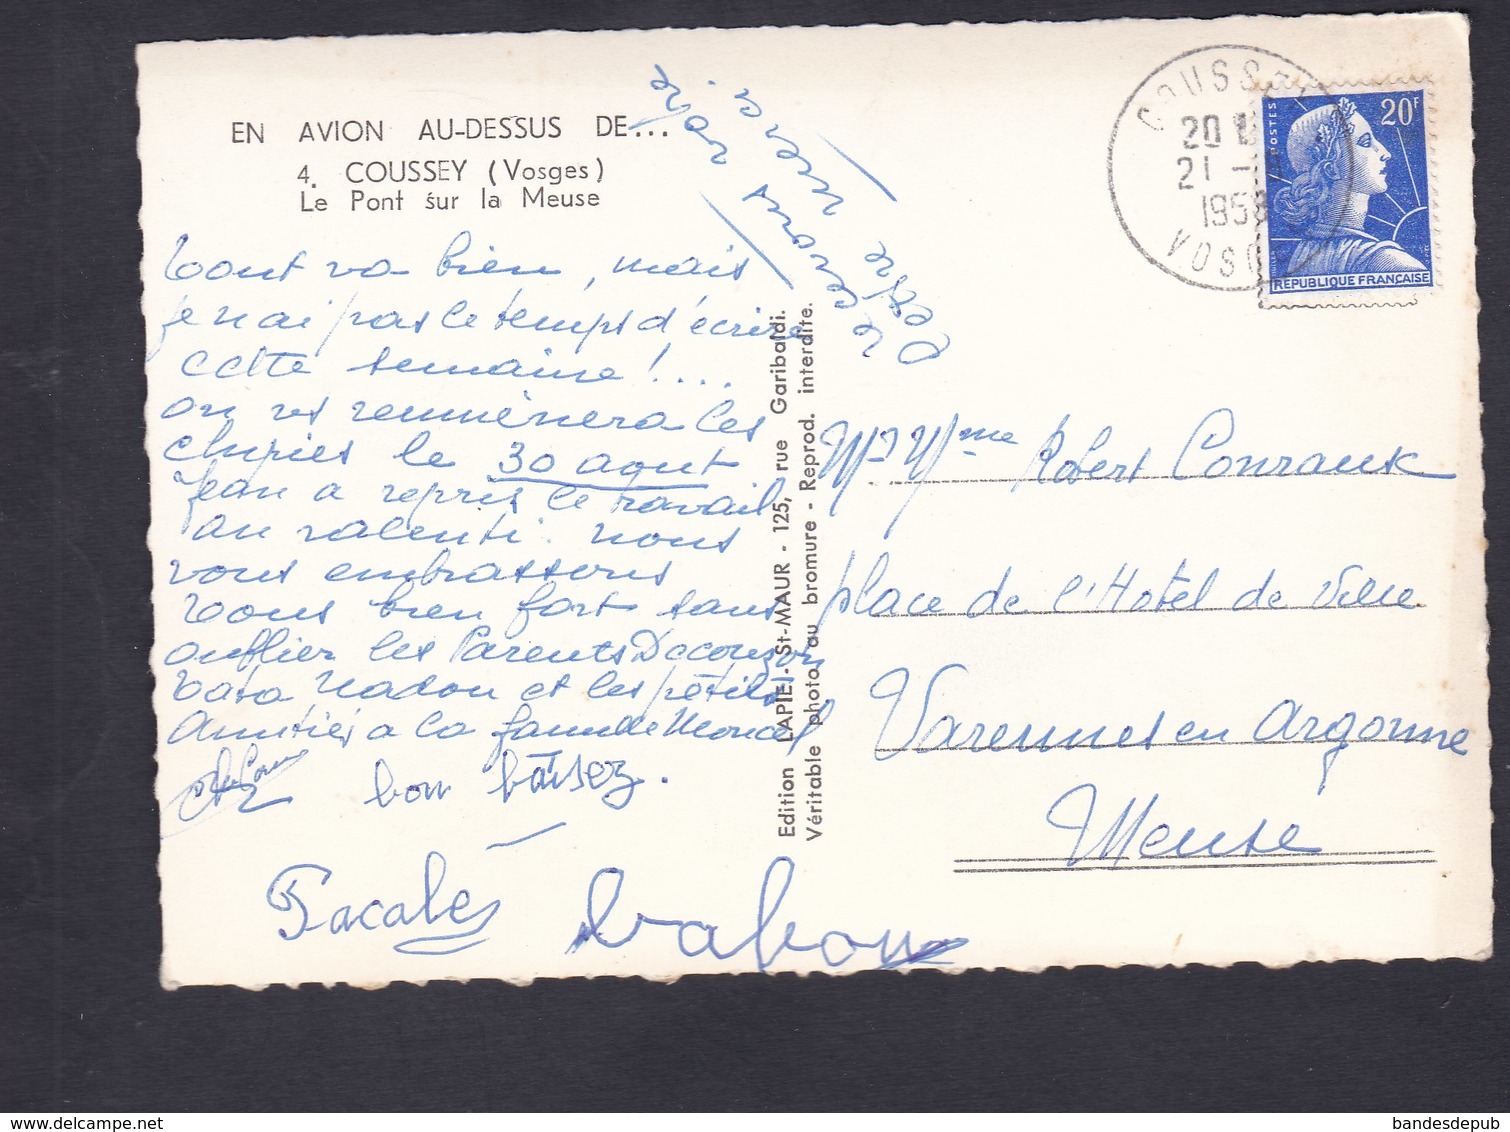 EN AVION AU-DESSUS DE...
4. COUSSEY (Vosges)
Le Pont sur la Meuse
Tout va bien, mais
je n'ai pas le temps d'écrire
cette semaine!....
on vs remmènera les
chipies le 30 aout
Jean a repris le travail
au ralenti. nous
vous embrassons
tous bien fort sans
oublier les Parents Decouzon
Tata Nadou et les petits
Amitiés a la famille Moncel
bon baisez.
recevons votre
lettre merci.
Edition LAPIE - St-MAUR - 125, rue Garibaldi.
Véritable photo au bromure - Reprod. interdite.
COUSSEY
20 H
21 -
1958
VOSGES
POSTES
20F
REPUBLIQUE FRANÇAISE
Mr Mme Robert Conraux
place de l'Hotel de Ville
Varennes en Argonne
Meuse
bandesdepub